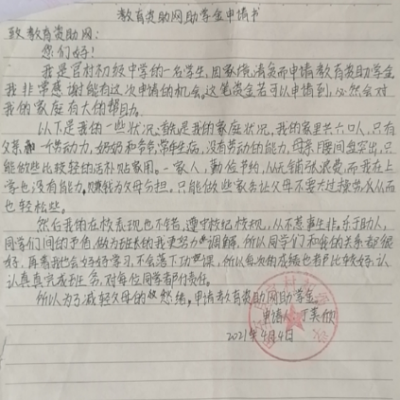 教育资助网助学金申请书
致教育资助网：
您们好！
我是官村初级中学的一名学生，因家境清贫而申请教育资助学金
我非常感谢能有这次申请的机会。这笔资金若可以申请到，必然会对
我的家庭有大的帮助。
以下是我的一些状况，就是我的家庭状况，我的家里共六口人，只有
父亲一个劳动力，奶奶和爷爷常年生病，没有劳动的能力，母亲腰间盘突出，只
能做些比较轻的活补贴家用。一家人，勤俭节约，从无铺张浪费，而我在上
学也没有能力赚钱为父母分担，只能做些家务让父母不要太过操劳，从而
也轻松些。
然后我的在校表现也不错，遵守校纪校规，从不惹事生非，乐于助人，
同学们间的矛盾，做为班长的我更努力调解，所以同学们和我的关系都很
好，再者我也会好好学习，不会落下功课，所以每次的成绩也都比较好，认
认真真完成任务，对每位同学都负责任。
所以为了减轻父母的愁绪，申请教育资助网助学金。
申请人：丁美欣
2021年4月4日